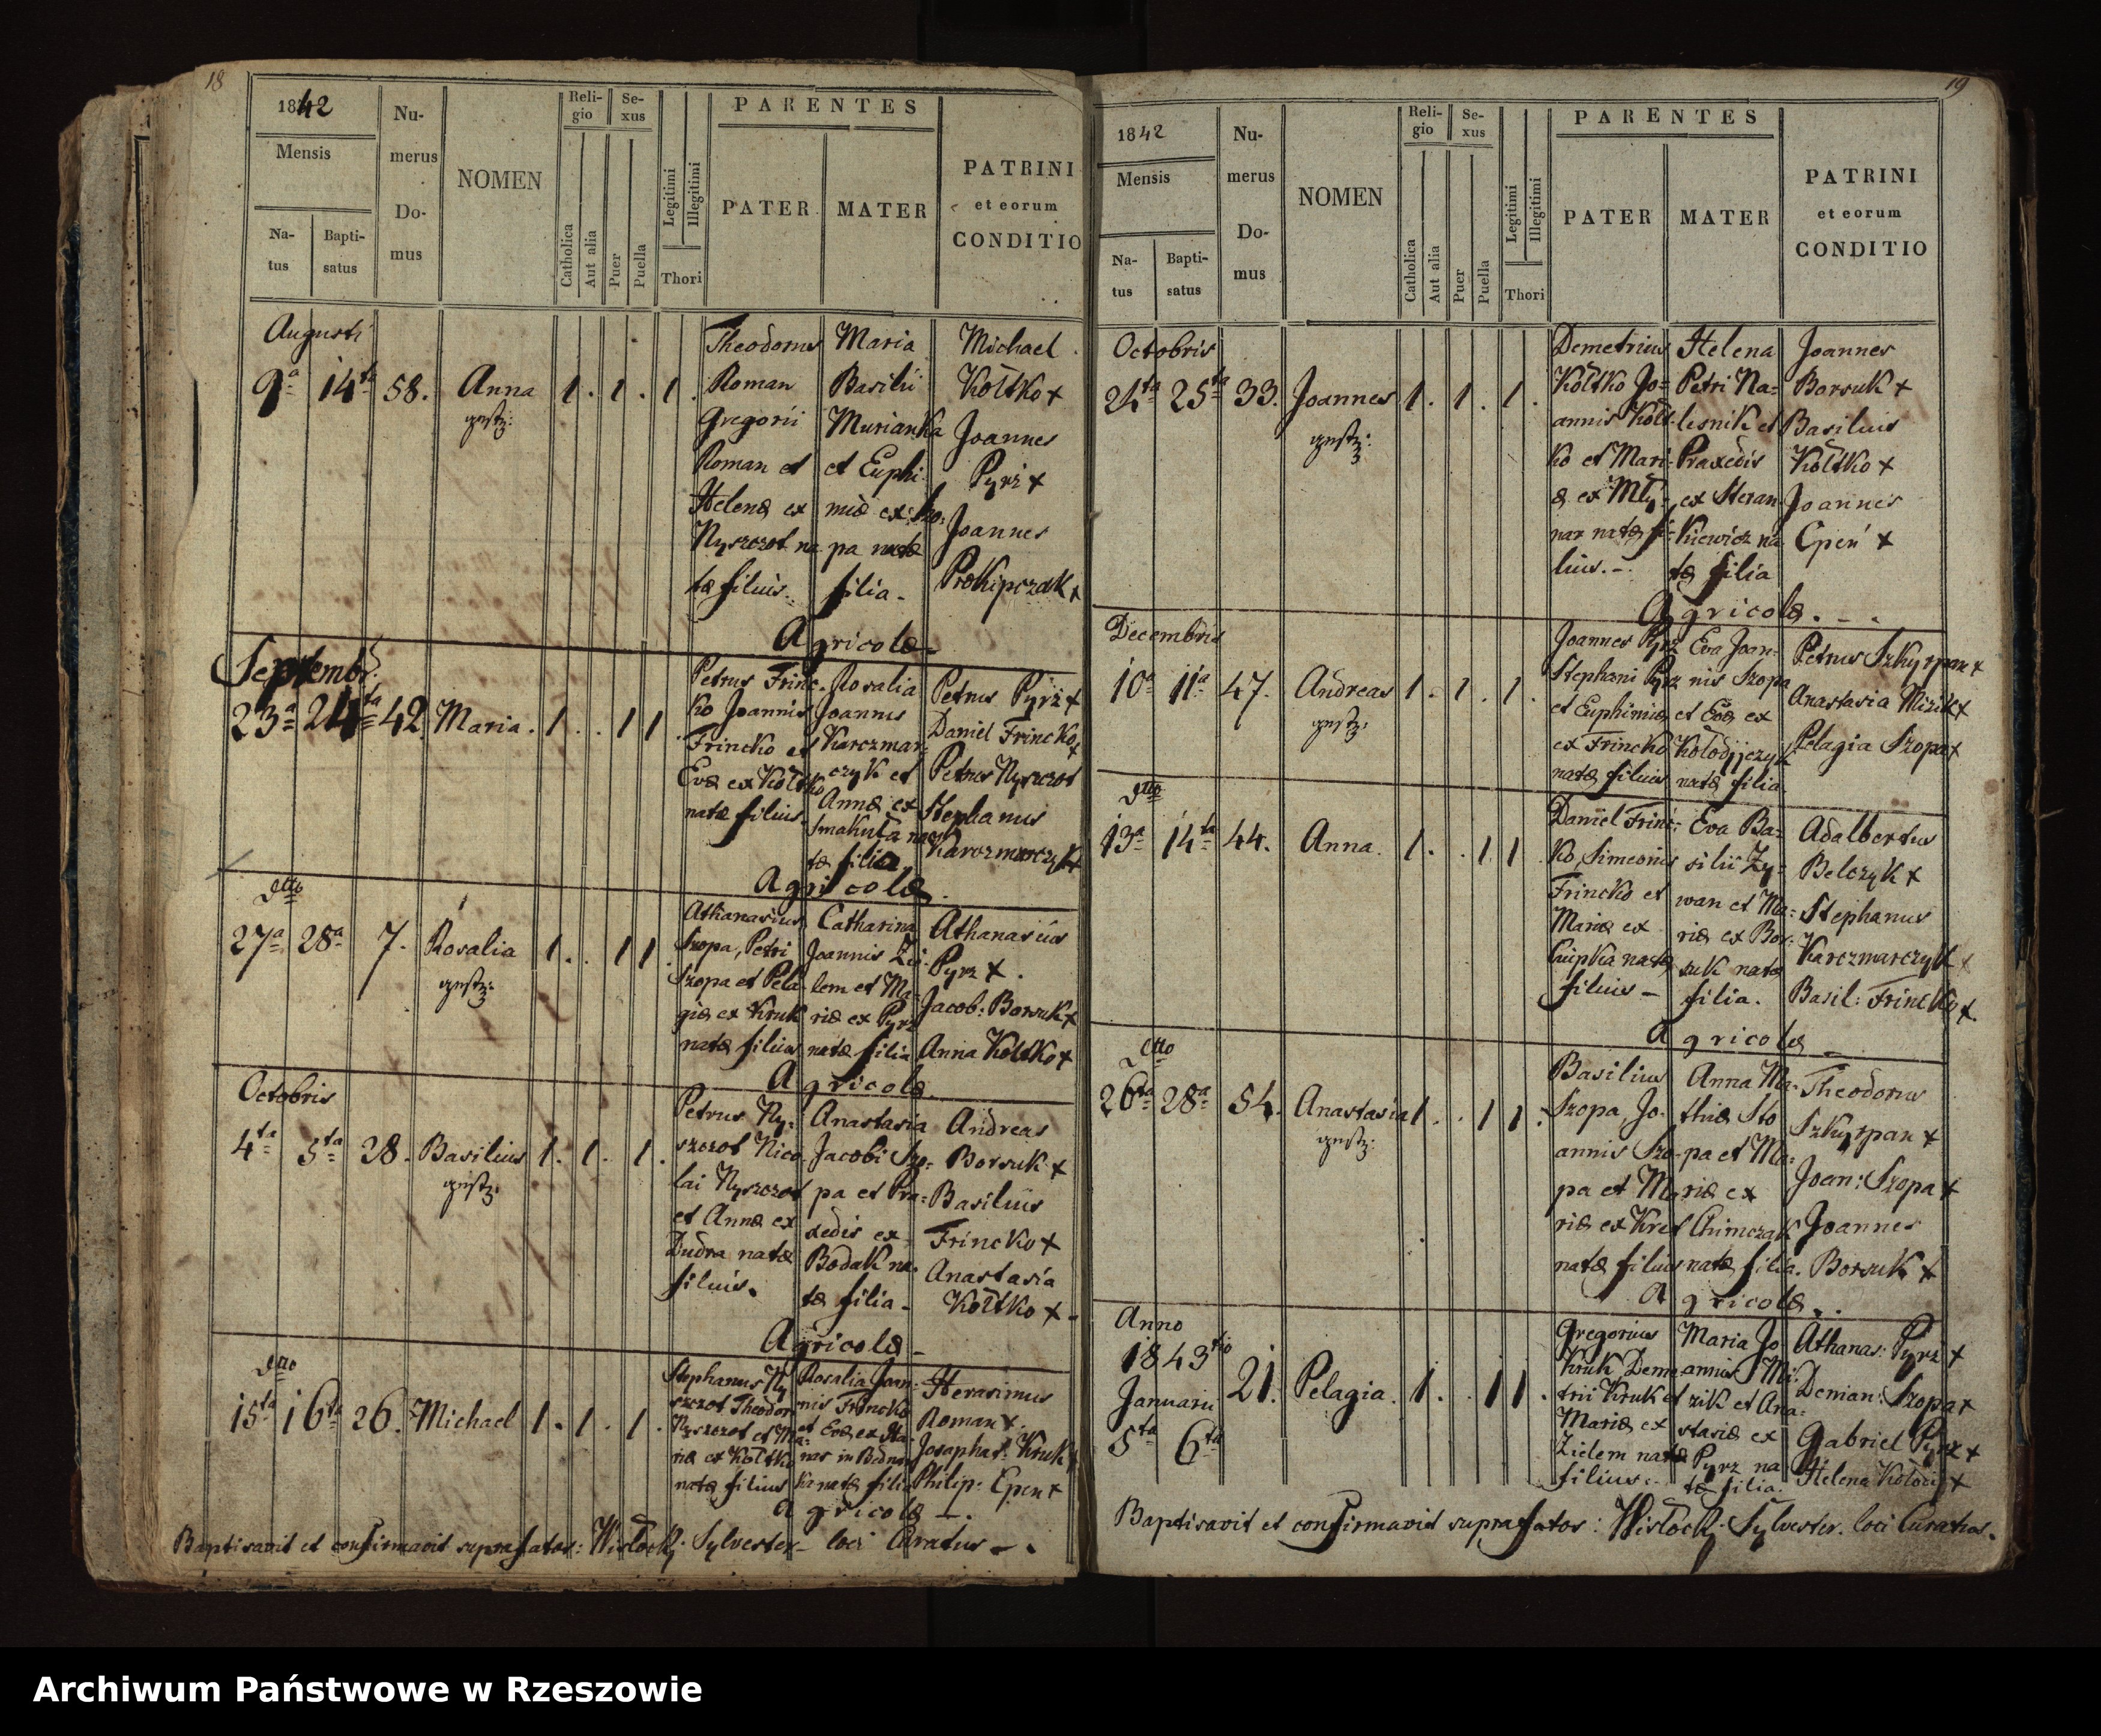 18
1842
Mensis
Na-
tus
Bapti-
satus
Nu-
merus
Do-
mus
NOMEN
Reli-
gio
Catholica
Aut alia
Se-
xus
Puer
Puella
Legitimi
Illegitimi
Thori
PARENTES
PATER
MATER
PATRINI
et eorum
CONDITIO
Augusti
9a 14ta 58. Anna 1. 1. 1.
Theodorus
Roman
Gregorii
Roman et
Helenæ ex
Nyszczot na
tæ filius.
Maria
Basilii
Murianka
et Euphi
miæ ex Szo:
pa natæ
filia -
Michael
Kołtko +
Joannes
Pyrz +
Joannes
Prokipczak +
Agricolæ -
Septembr.
23a 24ta 42. Maria. 1. . 1 1.
Petrus Frinc-
ko Joannis
Frincko et
Evæ ex Kołtko
natæ filius
Rosalia
Joannis
Karczmar-
czyk et
Annæ ex
Smakuła na
tæ filia
Petrus Pyrz +
Daniel Frincko +
Petrus Nyszczot
Stephanus
Karczmarczyk +
Agricolæ.
dtto
27a 28a 7. Rosalia 1. . 1 1.
Athanasius
Szopa, Petri
Szopa et Pela
giæ ex Kruk
natæ filius
Catharina
Joannis Zie
lem et Ma-
riæ ex Pyrz
natæ filia
Athanasius
Pyrz +.
Jacob: Borsuk +
Anna Kołtko +
Agricolæ.
Octobris
4ta 5ta 28. Basilius 1. 1. 1.
Petrus Ny:
szczot Nico
lai Nyszczot
et Annæ ex
Dudra natæ
filius.
Anastasia
Jacobi Szo-
pa et Pra:
xedis ex
Bodak na.
tæ filia -
Andreas
Borsuk +
Basilius
Frincko +
Anastasia
Kołtko + -
Agricolæ -
dtto
15ta 16ta 26. Michael 1. 1. 1.
Stephanus Ny
szczot Theodor
Nyszczot et Ma:
riæ ex Kołtko
natæ filius
Rosalia Joan:
nis Frincko
et Evæ ex
natæ filia
Herasimus
Roman +.
Josaphat: Kruk +
Philip: Epen +
Agricolæ -.
Baptisavit et confirmavit suprafatos: Wisłocki Sylvester - loci Curatus - .
19
1842
Mensis
Na-
tus
Bapti-
satus
Nu-
merus
Do-
mus
NOMEN
Reli-
gio
Catholica
Aut alia
Se-
xus
Puer
Puella
Legitimi
Illegitimi
Thori
PARENTES
PATER
MATER
PATRINI
et eorum
CONDITIO
Octobris
24ta 25ta 33. Joannes 1. 1. 1.
Demetrius
Kołtko Jo=
annis Kołt-
ko et Mari
æ ex Mły-
nar natæ fi-
lius. -
Helena
Petri Na=
lesnik et
Praxedis
ex Steran
kiewicz na
tæ filia
Joannes
Borsuk +
Basilius
Kołtko +
Joannes
Epen +
Agricolæ. - .
Decembris
10a 11a 47. Andreas 1. 1. 1.
Joannes Pyrz
Stephani Pyrz
et Euphimiæ
ex Frincko
natæ filius
Eva Joan:
nis Szopa
et Evæ ex
Kołodijczyk
natæ filia.
Petrus Szkyrpan +
Anastasia Mizik +
Pelagia Szopa +
dtto
13a 14ta 44. Anna. 1. . 1. 1
Daniel Frinc:
ko, Simeonis
Frincko et
Mariæ ex
Ciupka natæ
filius -
Eva Ba:
silii Zy=
wan et Ma:
riæ ex Bor:
suk natæ
filia.
Adalbertus
Belczyk +
Stephanus
Karczmarczyk +
Basil: Frincko +.
Agricolæ -
dtto
26ta 28a 54. Anastasia 1. . 1 1.
Basilius
Szopa, Jo-
annis Szo-
pa et Ma
riæ ex Kret
natæ filius
Anna Ma-
thiæ Szo
pa et Ma:
riæ ex
Chimczak
natæ filia.
Theodorus
Szkyrpan +
Joan: Szopa +
Joannes
Borsuk +
Agricolæ. .
Anno
1843tio
Januarii
5ta 6ta 21. Pelagia. 1. . 1 1.
Gregorius
Kruk, Deme
trii Kruk et
Mariæ ex
Zielem natæ
filius.
Maria Jo
annis Mi:
zik et Ana:
stasiæ ex
Pyrz na
tæ filia.
Athanas: Pyrz +
Demian: Szopa +
Gabriel Pyrz +
Baptisavit et confirmavit suprafatos: Wisłocki Sylvester. loci Curatus.
Archiwum Państwowe w Rzeszowie